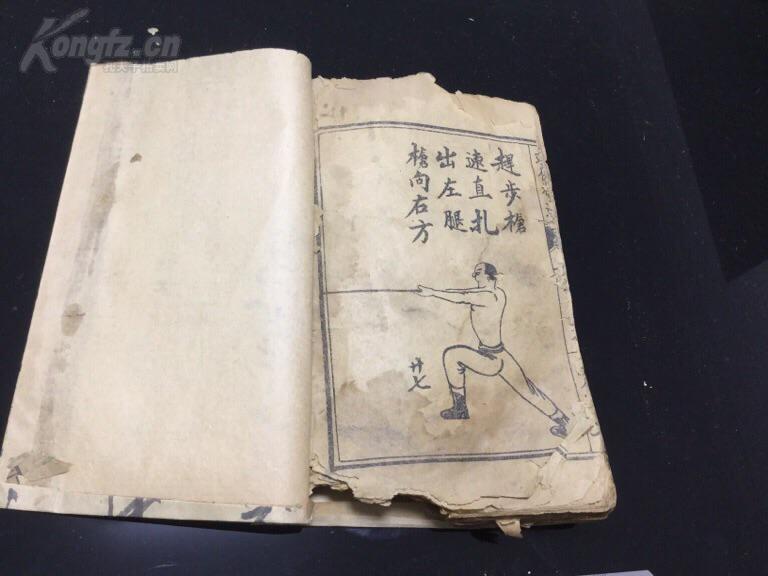 趕步槍
速直扎
出左腿
槍向右方
廿七
Kongfz.cn
孔夫子拍卖网